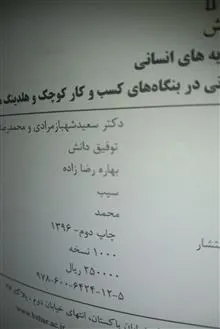 یه های انسانی
نی در بنگاه‌های کسب و کار کوچک و هلدینگ
دکتر سعید شهبازمرادی و محمدرضا
توفیق دانش
بهاره رضا زاده
سیب
محمد
چاپ دوم - ۱۳۹۶
۱۰۰۰ نسخه
۲۵۰۰۰۰ ریال
۹۷۸-۶۰۰-۶۴۲۴-۱۲-۵
انتشار
پاکستان، انتهای خیابان دوم، پلاک